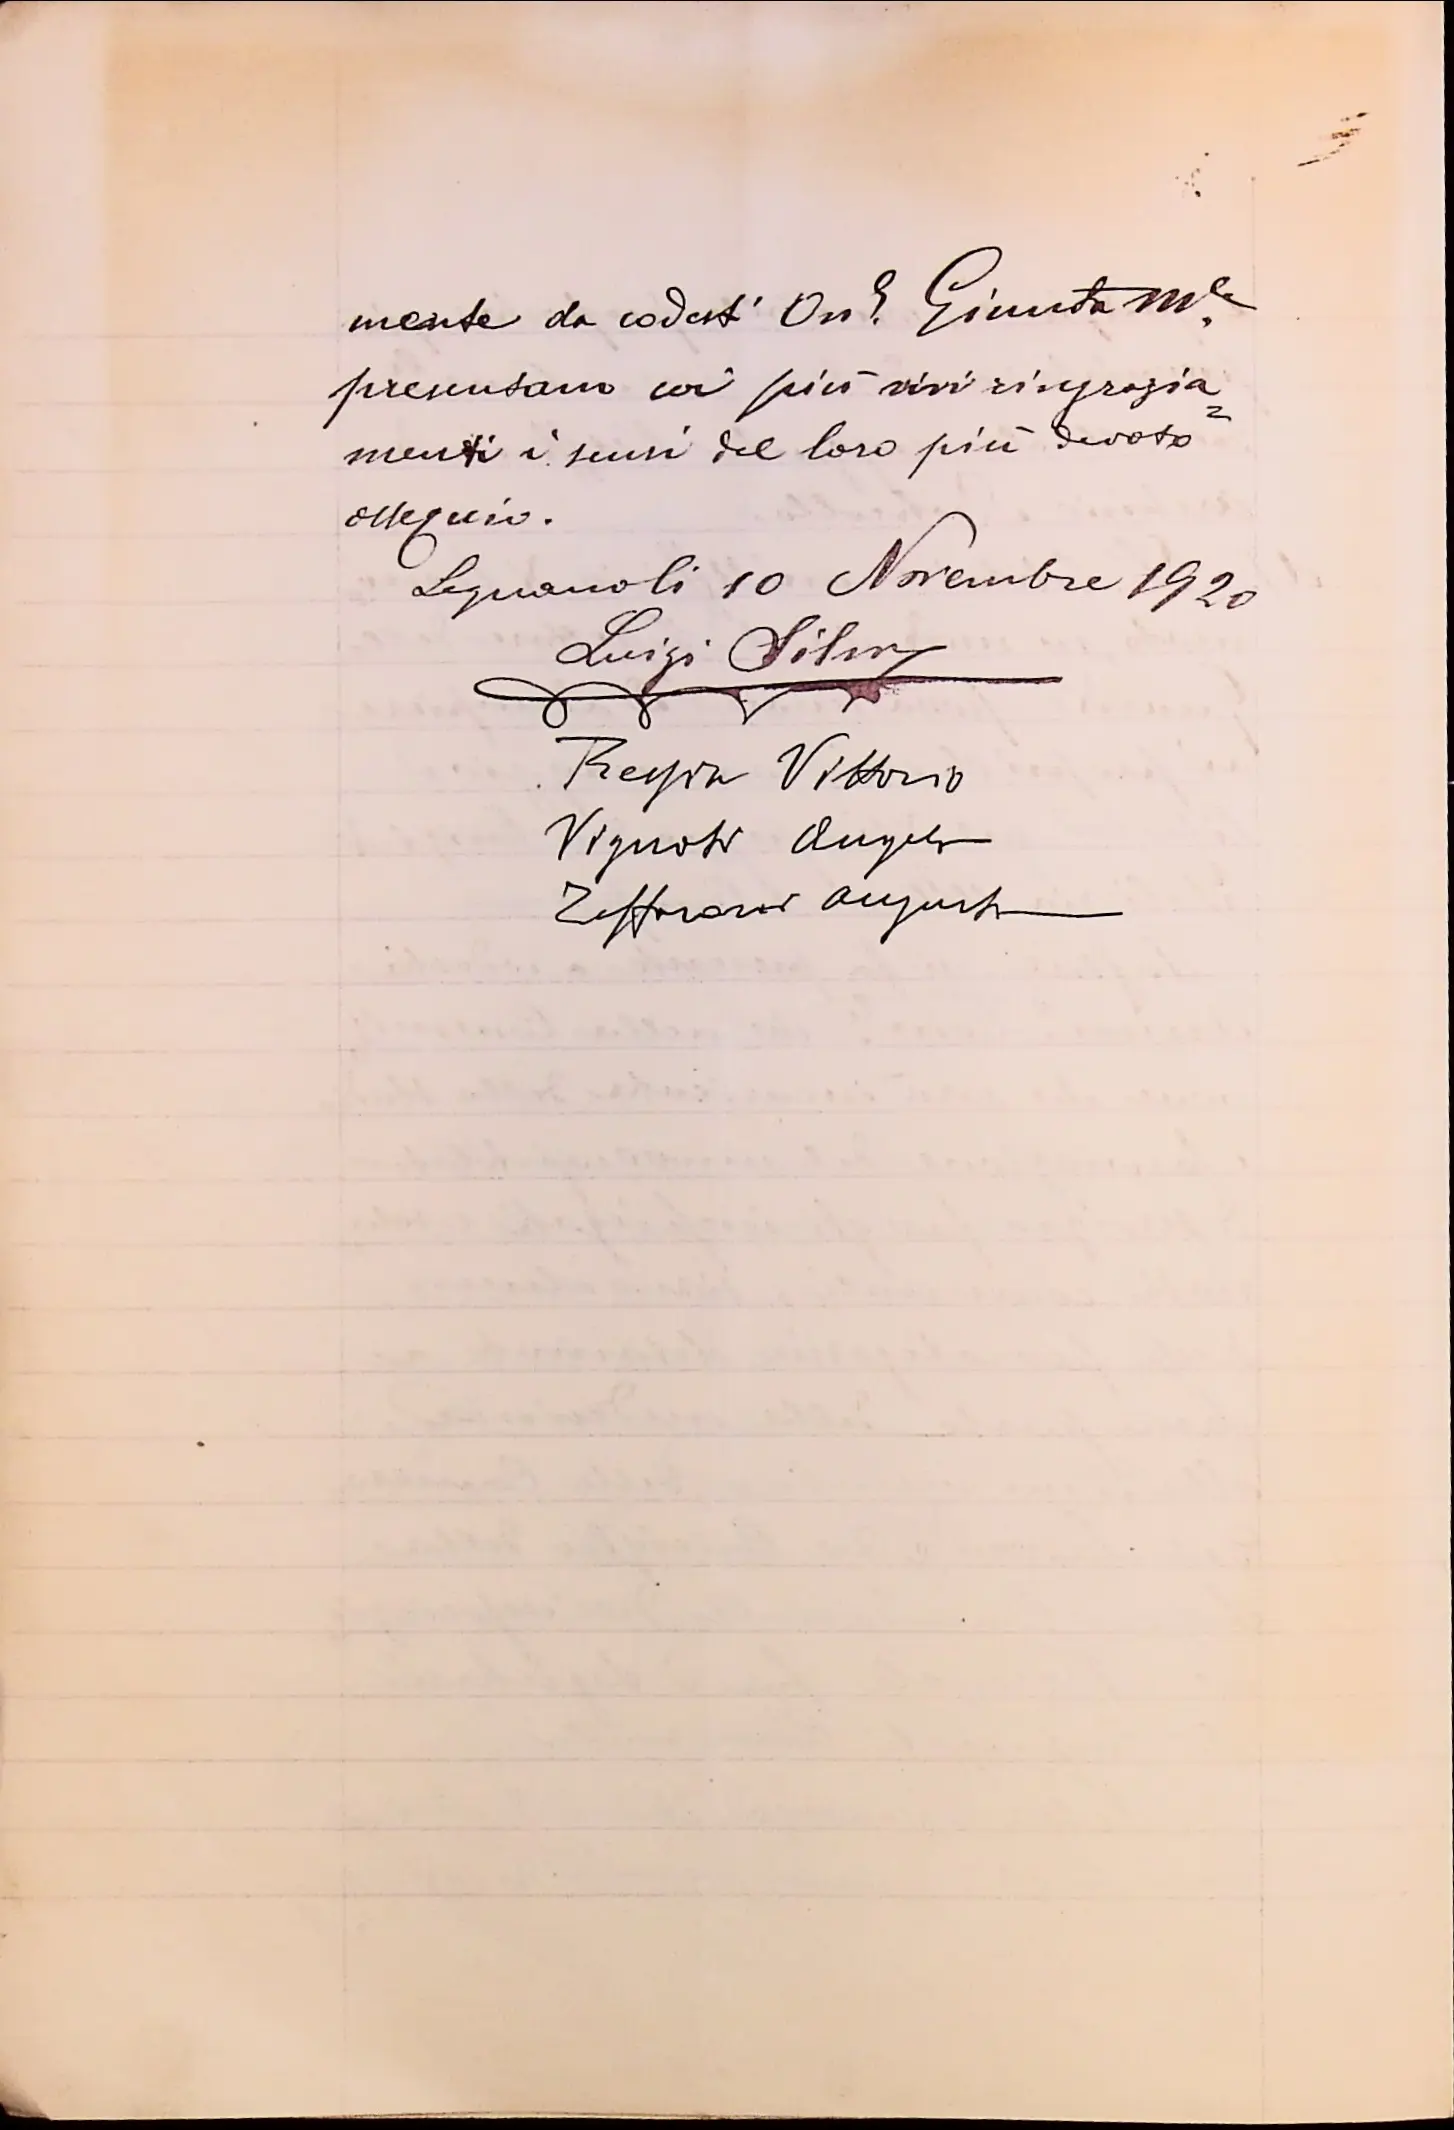 mente da codest' On.e Giunta M.le
presentano coi più vivi ringrazia=
menti i sensi del loro più devoto
ossequio.
Legnanoli 10 Novembre 1920
Luigi
Vittorio
Vignati Angelo
Augusto